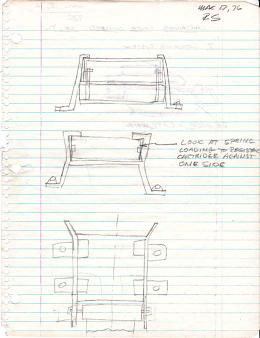 MAR 17, 76
RS
LOOK AT SPRING
LOADING TO REGISTER
CARTRIDGE AGAINST
ONE SIDE